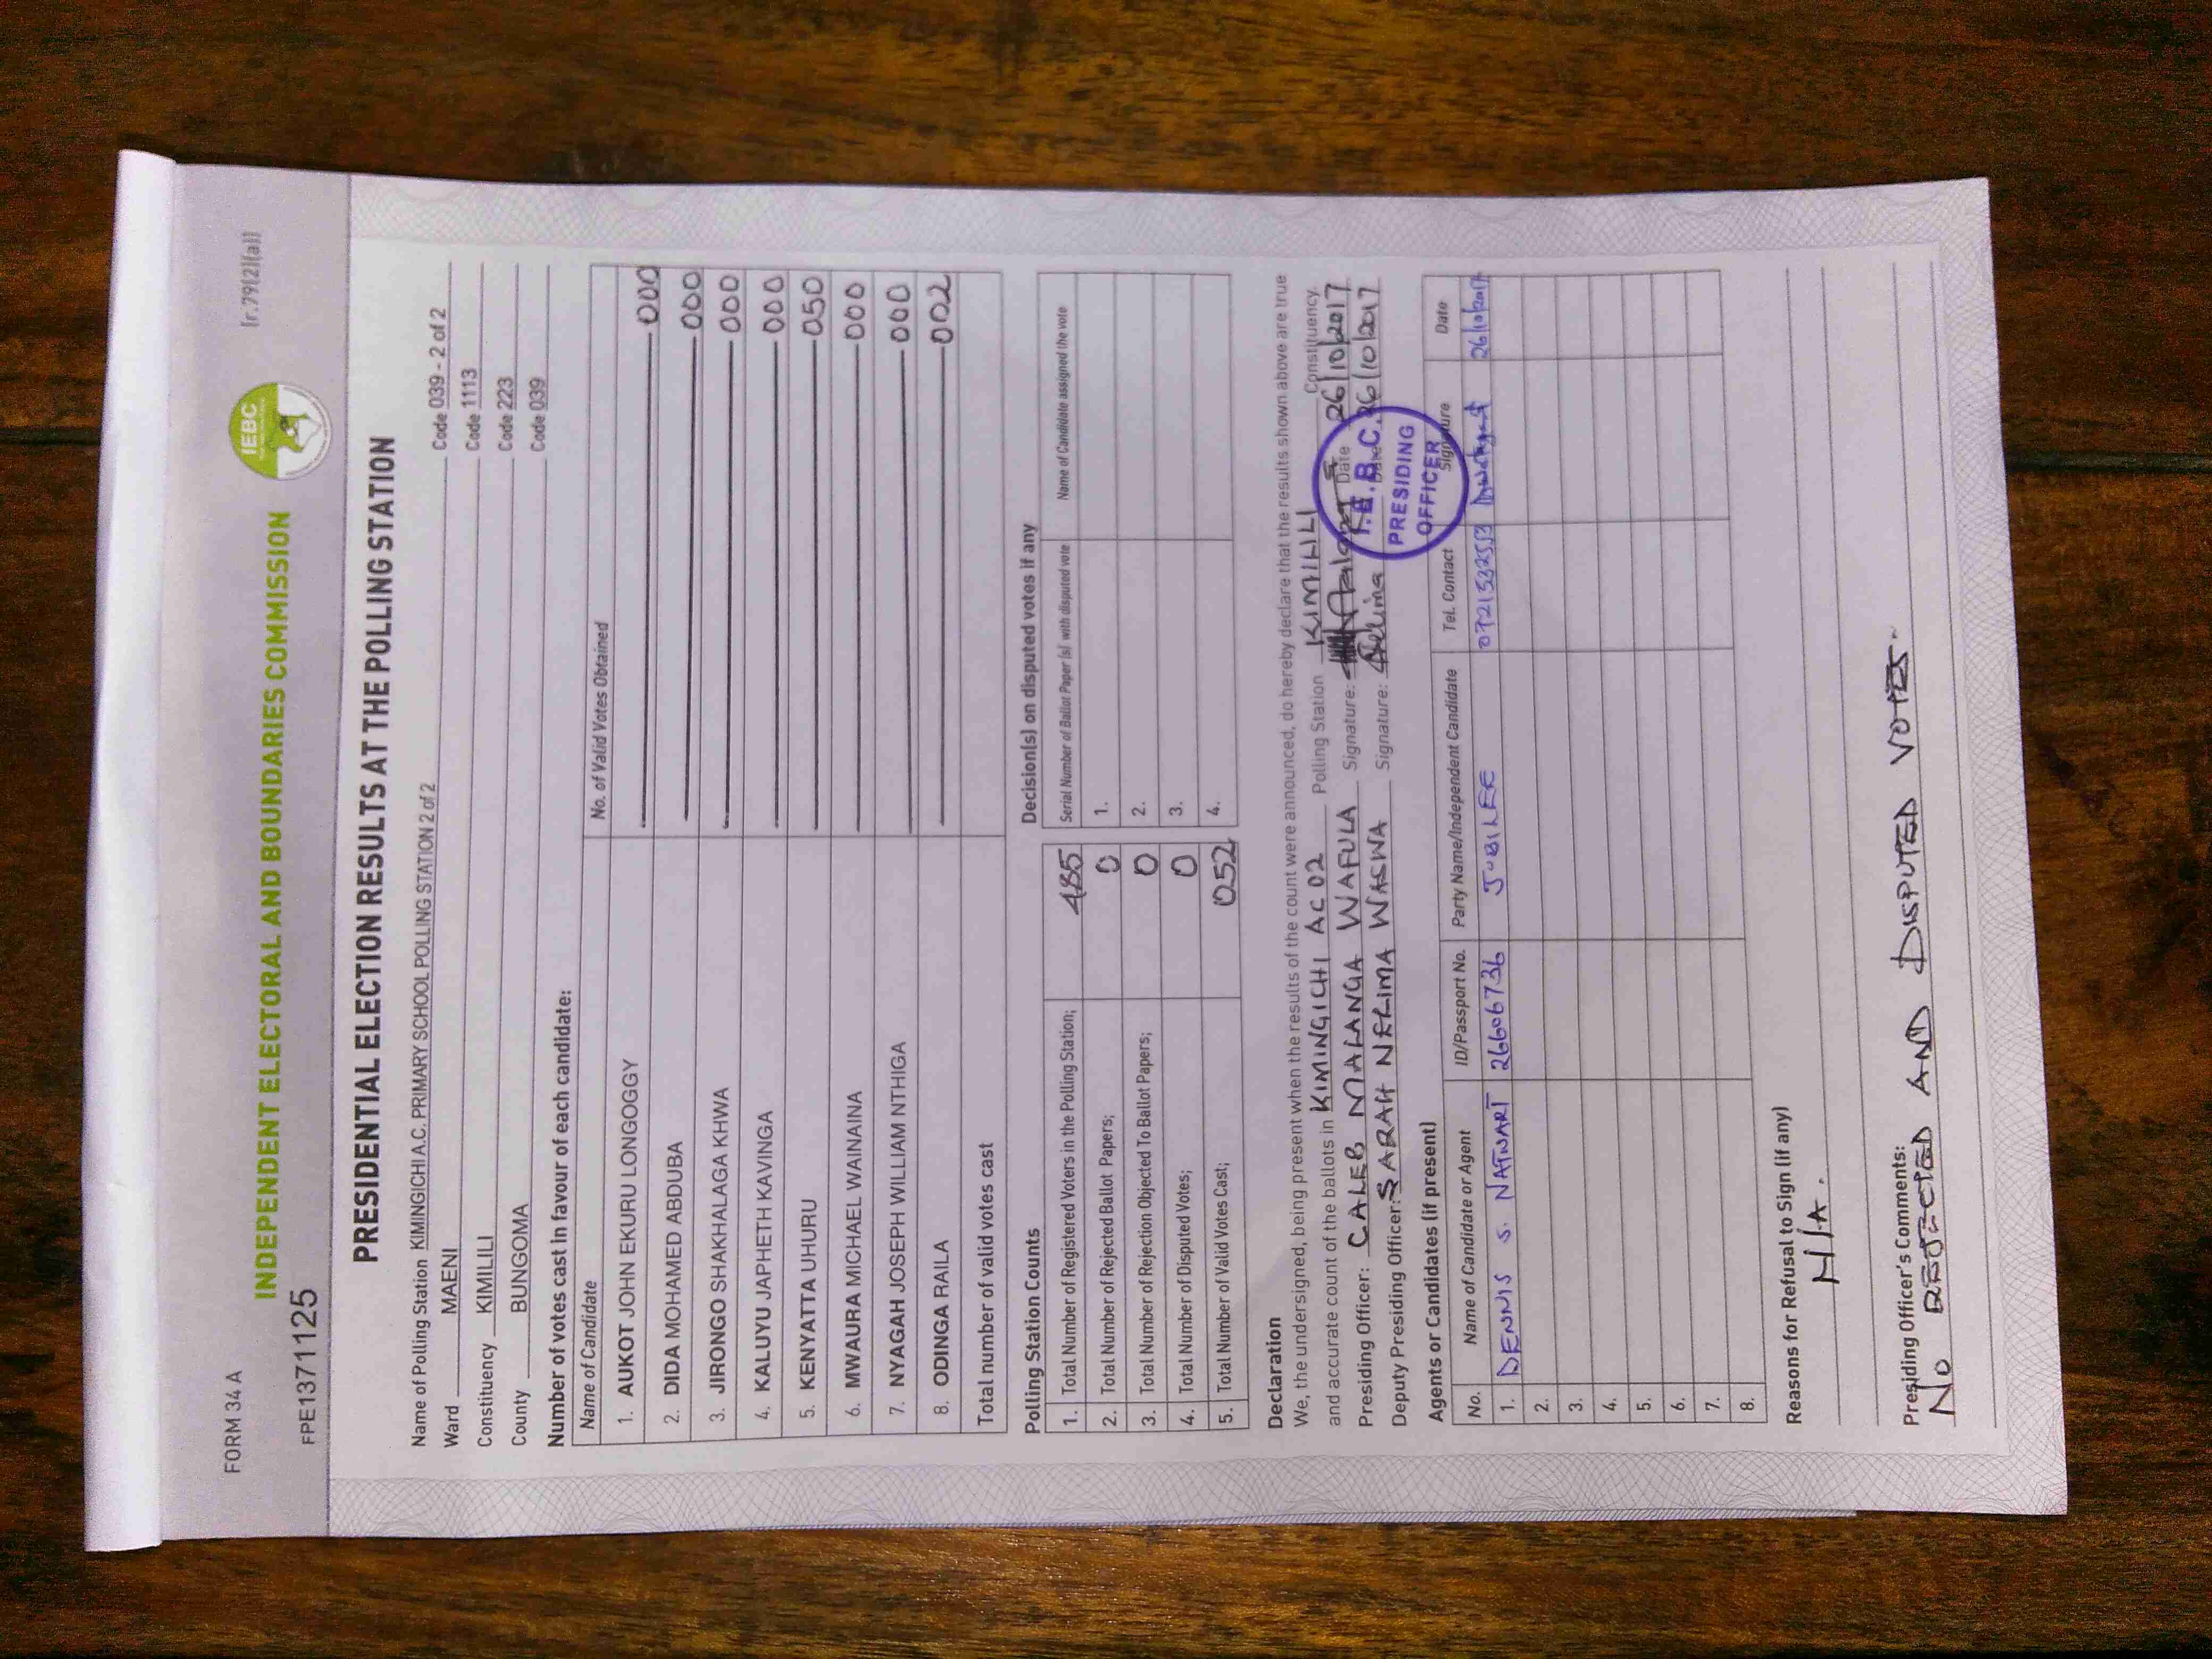 FORM 34 A
(r.79(2)(a))
INDEPENDENT ELECTORAL AND BOUNDARIES COMMISSION
IEBC
FPE1371125
PRESIDENTIAL ELECTION RESULTS AT THE POLLING STATION
Name of Polling Station KIMINGICHI A.C. PRIMARY SCHOOL POLLING STATION 2 of 2 Code 039 - 2 of 2
Ward MAENI Code 1113
Constituency KIMILILI Code 223
County BUNGOMA Code 039
Number of votes cast in favour of each candidate:
Name of Candidate No. of Valid Votes Obtained
1. AUKOT JOHN EKURU LONGOGGY 000
2. DIDA MOHAMED ABDUBA 000
3. JIRONGO SHAKHALAGA KHWA 000
4. KALUYU JAPHETH KAVINGA 000
5. KENYATTA UHURU 050
6. MWAURA MICHAEL WAINAINA 000
7. NYAGAH JOSEPH WILLIAM NTHIGA 000
8. ODINGA RAILA 002
Total number of valid votes cast
Polling Station Counts
1. Total Number of Registered Voters in the Polling Station; 485
2. Total Number of Rejected Ballot Papers; 0
3. Total Number of Rejection Objected To Ballot Papers; 0
4. Total Number of Disputed Votes; 0
5. Total Number of Valid Votes Cast; 052
Decision(s) on disputed votes if any
Serial Number of Ballot Paper (s) with disputed vote Name of Candidate assigned the vote
1.
2.
3.
4.
Declaration
We, the undersigned, being present when the results of the count were announced, do hereby declare that the results shown above are true
and accurate count of the ballots in KIMINGICHI AC 02 Polling Station KIMILILI Constituency.
Presiding Officer: CALEB MALANGA WAFULA Signature: Date 26/10/2017
Deputy Presiding Officer: SARAH NELIMA WASWA Signature: Nelima 26/10/2017
I.E.B.C.
PRESIDING
OFFICER
Agents or Candidates (if present)
No. Name of Candidate or Agent ID/Passport No. Party Name/Independent Candidate Tel. Contact Signature Date
1. DENNIS S. 26606736 JUBILEE 26/10/2017
2.
3.
4.
5.
6.
7.
8.
Reasons for Refusal to Sign (if any)
N/A.
Presiding Officer's Comments:
NO REJECTED AND DISPUTED VOTES.